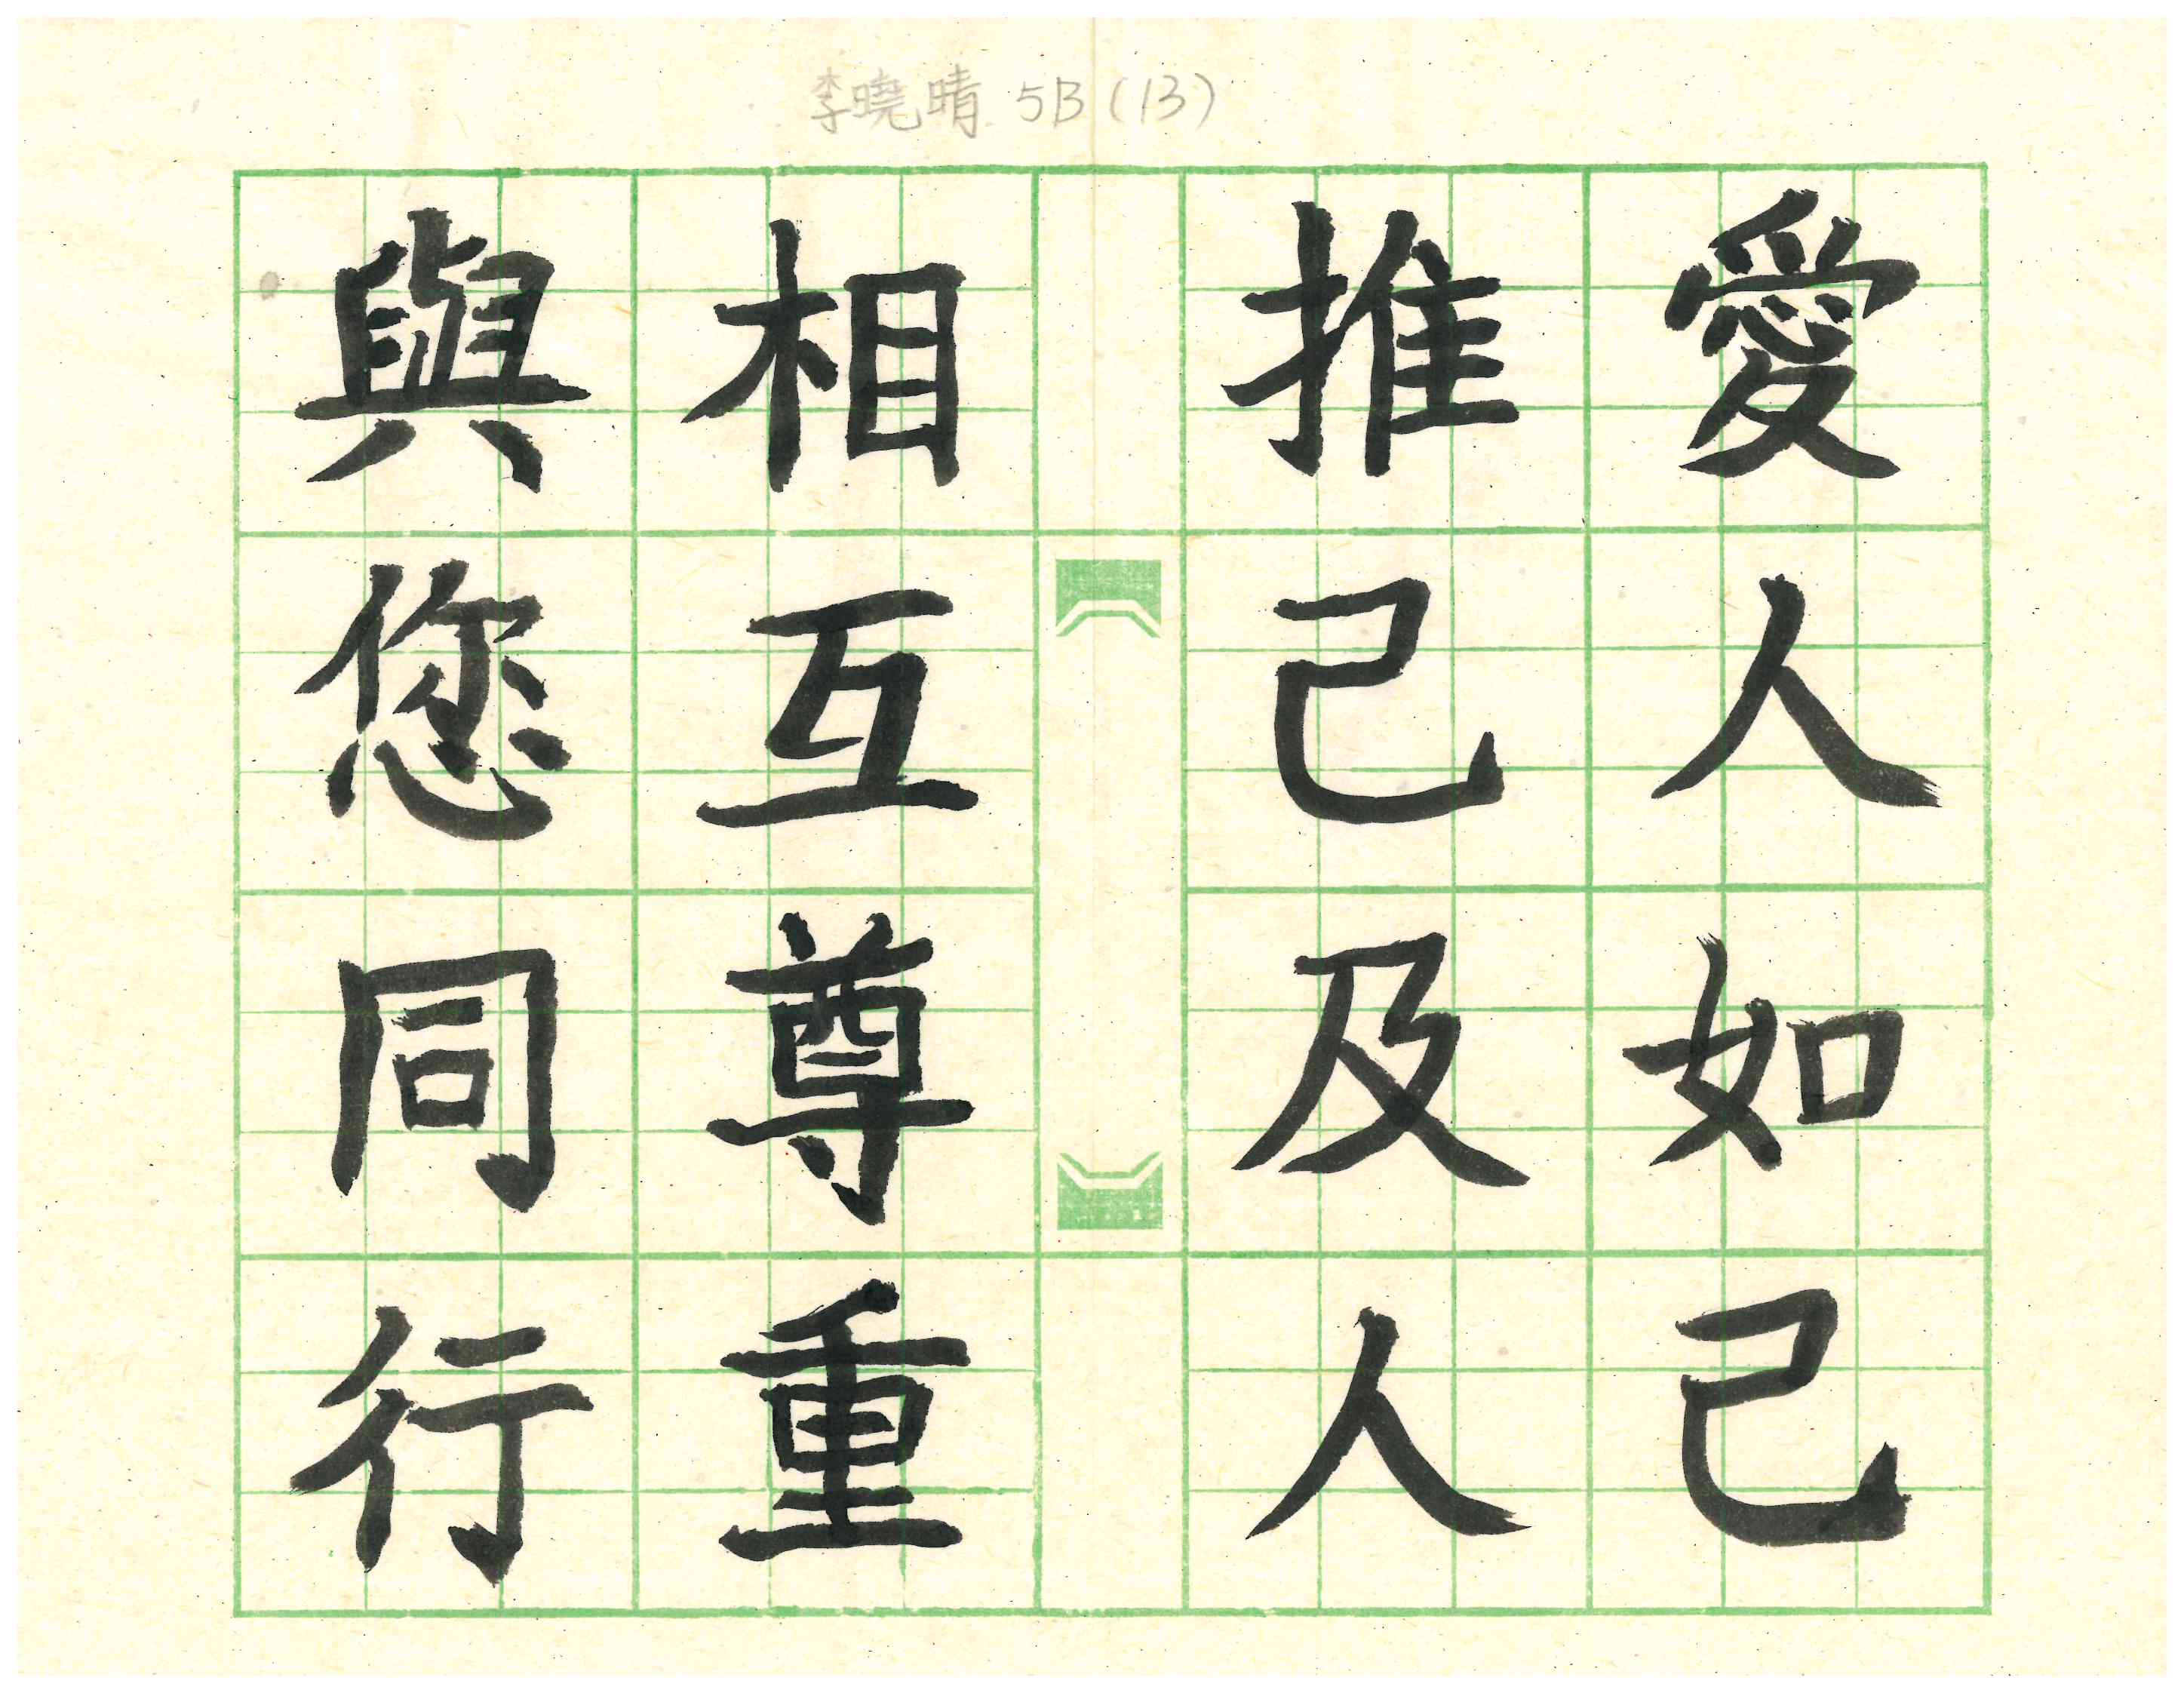 李曉晴 5B (13)
愛人如己
推己及人
相互尊重
與您同行